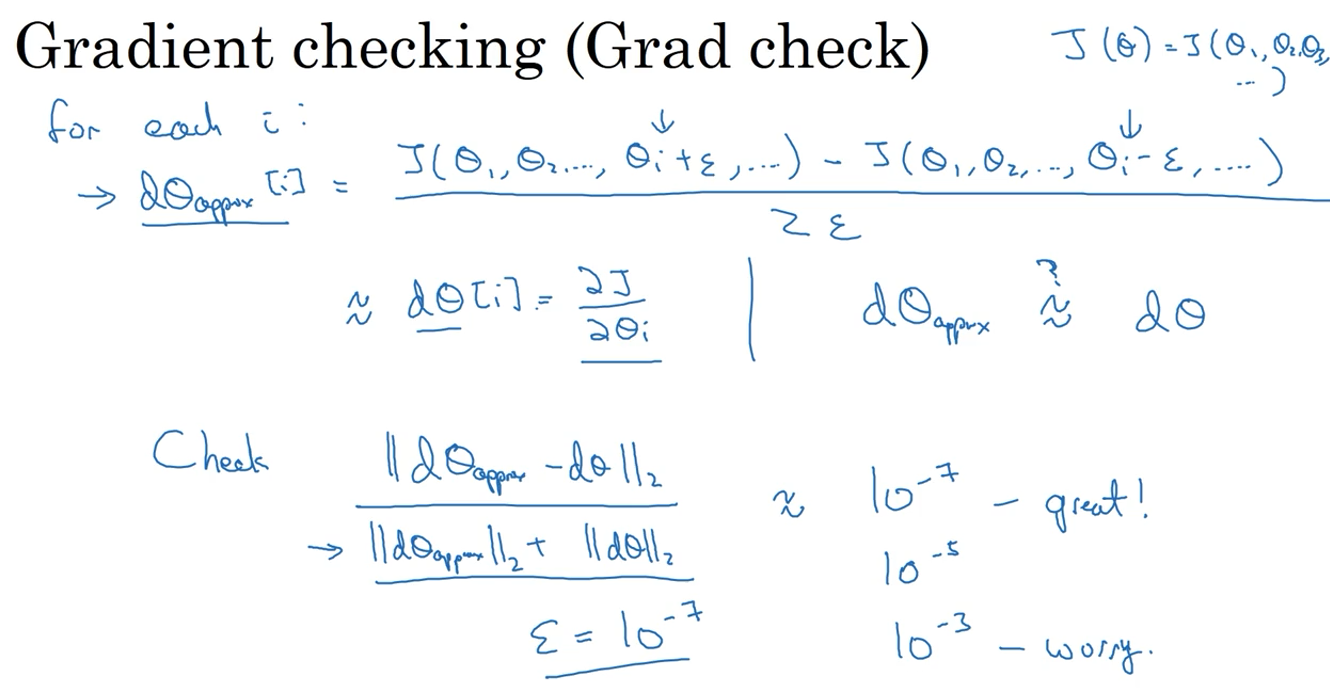 Gradient checking (Grad check)
J(θ) = J(θ₁, θ₂, θ₃, ...)
for each i:
→ dθapprox[i] = J(θ₁, θ₂, ..., θᵢ+ε, ...) - J(θ₁, θ₂, ..., θᵢ-ε, ...) / 2ε
≈ dθ[i] = ∂J/∂θᵢ | dθapprox ≈? dθ
Check ||dθapprox - dθ||₂ / → ||dθapprox||₂ + ||dθ||₂ ≈ 10⁻⁷ - great!
10⁻⁵
ε = 10⁻⁷
10⁻³ - worry.